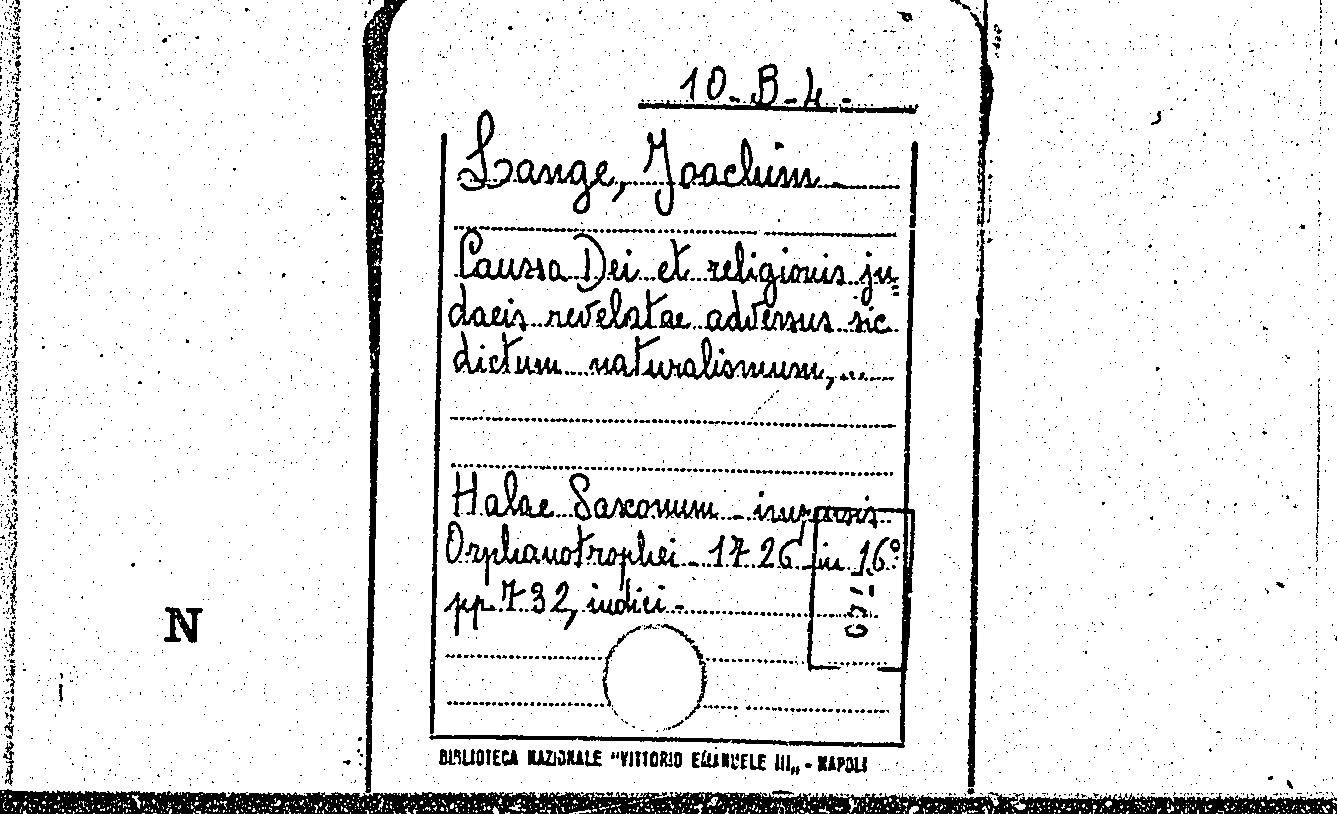 10-B-4-
Lange, Joachim
Caussa Dei et religionis ju=
daeis revelatae adversus sic
dictum naturalismum,...
Halae Saxonum - impensis
Orphanotrophei - 1726 in 16º
pp. 732, indici -
N
BIBLIOTECA NAZIONALE "VITTORIO EMANUELE III„ - NAPOLI